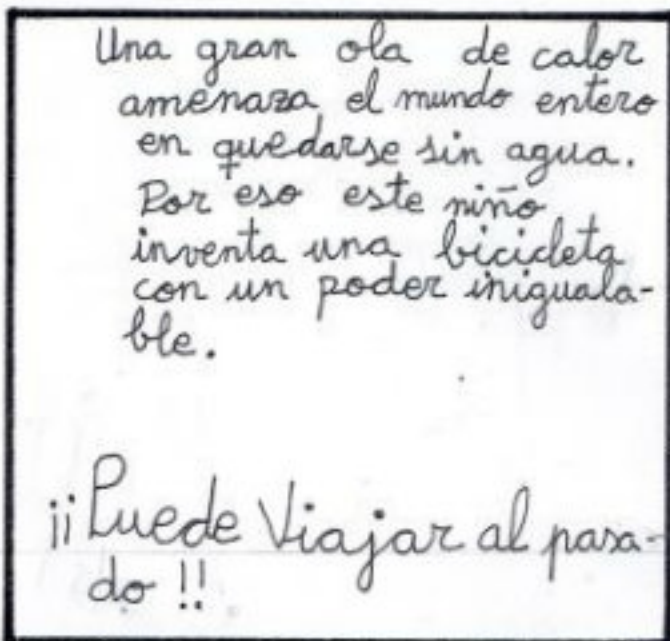 Una gran ola de calor
amenaza el mundo entero
en quedarse sin agua.
Por eso este niño
inventa una bicicleta
con un poder iniguala-
ble.
¡¡Puede Viajar al pasa-
do !!